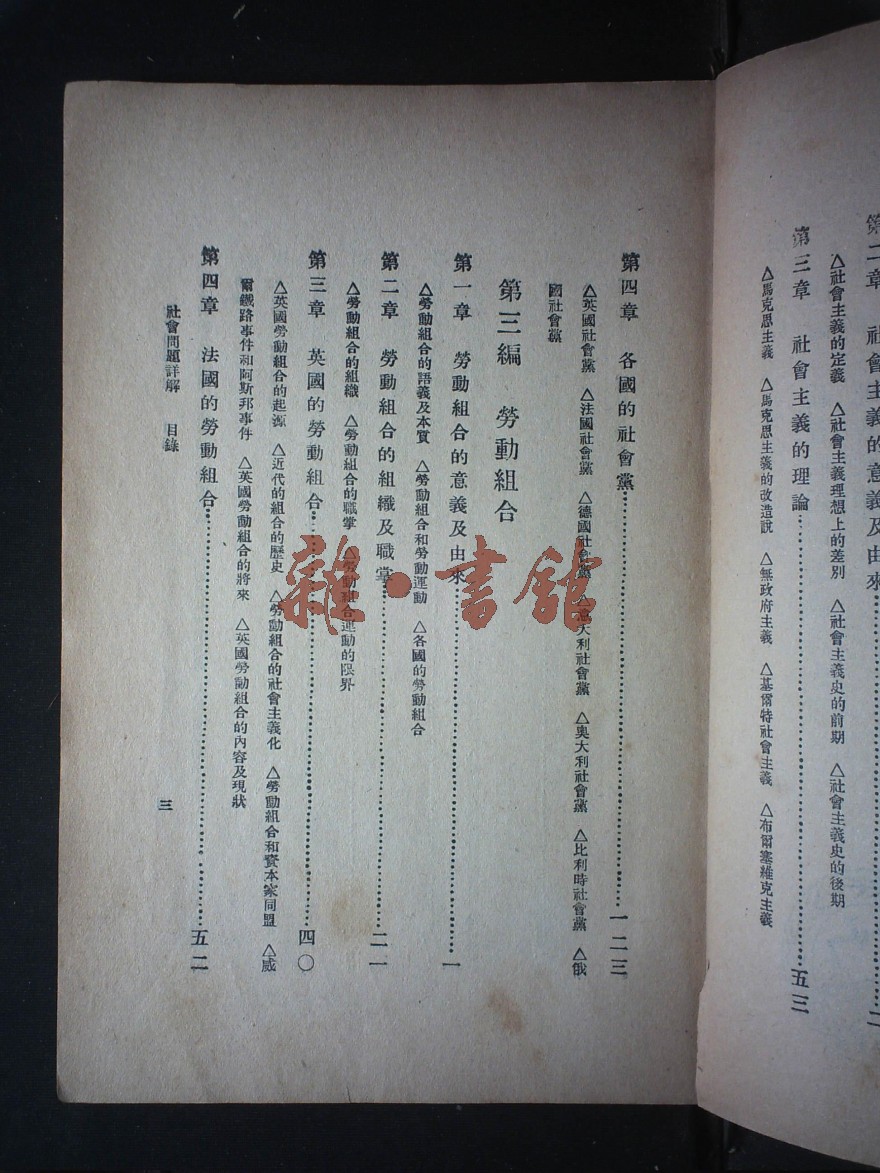 第二章 社會主義的意義及由來……二
△社會主義的定義 △社會主義理想上的差別 △社會主義史的前期 △社會主義史的後期
第三章 社會主義的理論……五三
△馬克思主義 △馬克思主義的改造說 △無政府主義 △基爾特社會主義 △布爾塞維克主義
第四章 各國的社會黨……一二三
△英國社會黨 △法國社會黨 △德國社會黨 △意大利社會黨 △奧大利社會黨 △比利時社會黨 △俄
國社會黨
第三編 勞動組合
第一章 勞動組合的意義及由來……一
△勞動組合的語義及本質 △勞動組合和勞動運動 △各國的勞動組合
第二章 勞動組合的組織及職掌……二一
△勞動組合的組織 △勞動組合的職掌 △勞動組合運動的限界
第三章 英國的勞動組合……四〇
△英國勞動組合的起源 △近代的組合的歷史 △勞動組合的社會主義化 △勞動組合和資本家同盟 △威
爾鐵路事件和阿斯邦事件 △英國勞動組合的將來 △英國勞動組合的內容及現狀
第四章 法國的勞動組合……五二
社會問題詳解 目錄 三
雜·書館